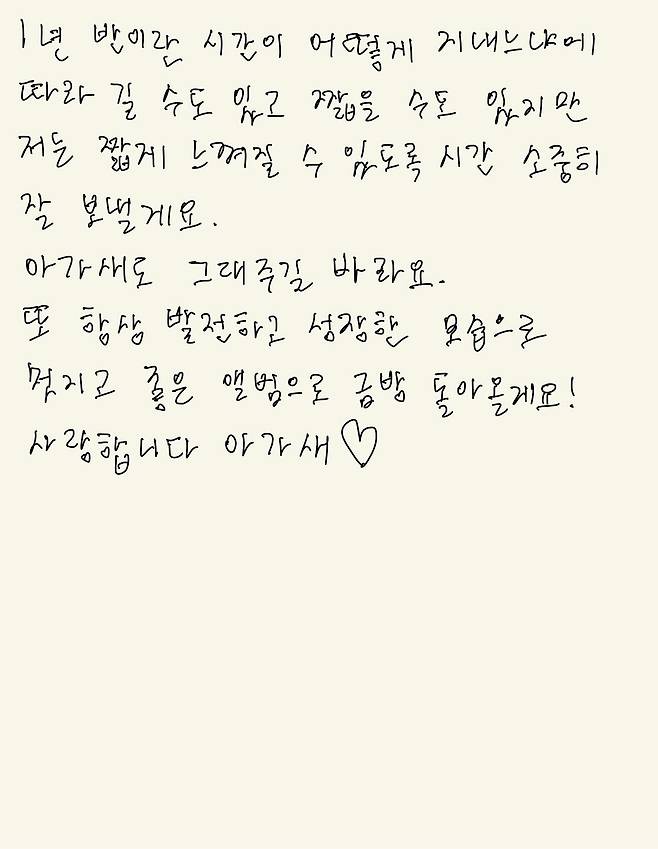 1년 반이란 시간이 어떻게 지내느냐에
따라 길 수도 있고 짧을 수도 있지만
저는 짧게 느껴질 수 있도록 시간 소중히
잘 보낼게요.
아가새도 그래주길 바라요.
또 항상 발전하고 성장한 모습으로
멋지고 좋은 앨범으로 금방 돌아올게요!
사랑합니다 아가새♡